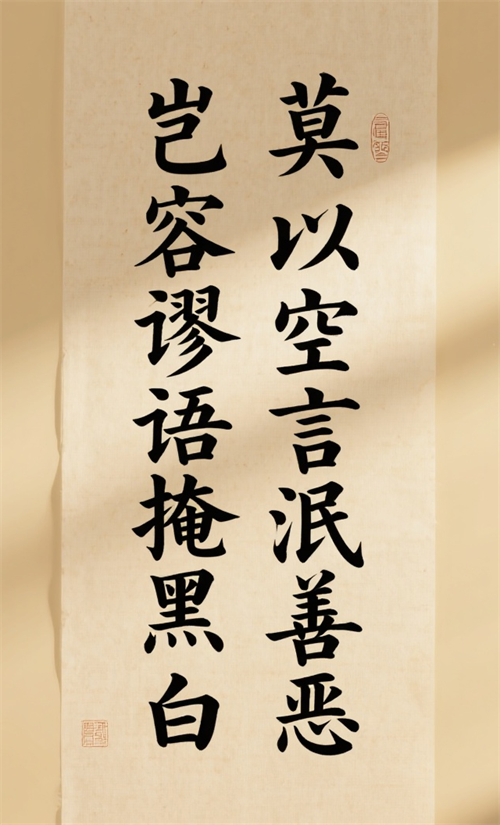 莫以空言泯善恶
岂容谬语掩黑白